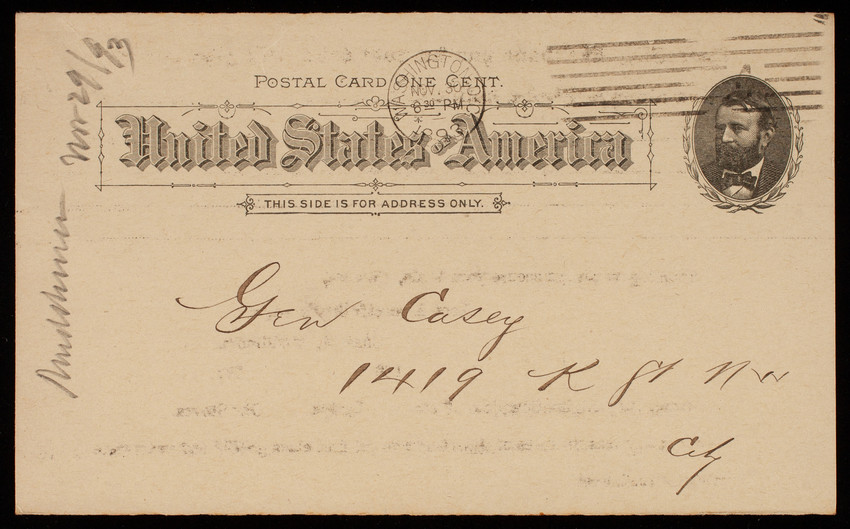 POSTAL CARD ONE CENT.
WASHINGTON, D.C.
NOV. 30
8 30 PM
United States America
THIS SIDE IS FOR ADDRESS ONLY.
Gen Casey
1419 K St Nw
City
Nov 29/93